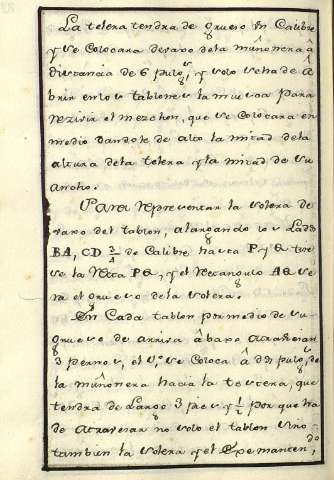 La telera tendra de grueso un Calibre
y se Colocara devaxo dela muñonera â
distancia de 6 pulgs, y solo se ha de â
brir en los tablones la muesca para
recivir el mechon, que se Colocara en
medio dandole de alto la mitad dela
altura dela telera y la mitad de su
ancho.
Para representar la solera de
vaxo del tablon, alargando los Lados
BA, CD 3/4 de Calibre hasta P y Q tire
se la recta PQ, y el rectangulo AQ se
ra el grueso dela solera.
En Cada tablon por medio de su
grueso de arriva â baxo atraviesan
3 pernos, el 1o se Coloca â dos pulgs, de
la muñonera hacia la testera, que
tendra de Largo 3 pies y 1/2 por que ha
de atravesar no solo el tablon sino
tambien la solera y el